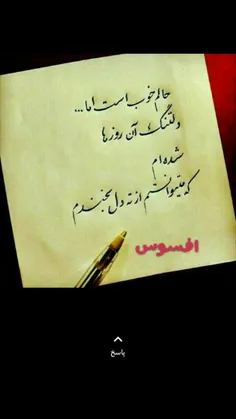 حالم خوب است اما...
دلتنگ آن روزها
شده ام
که میتوانستم از ته دل بخندم
افسوس
پاسخ